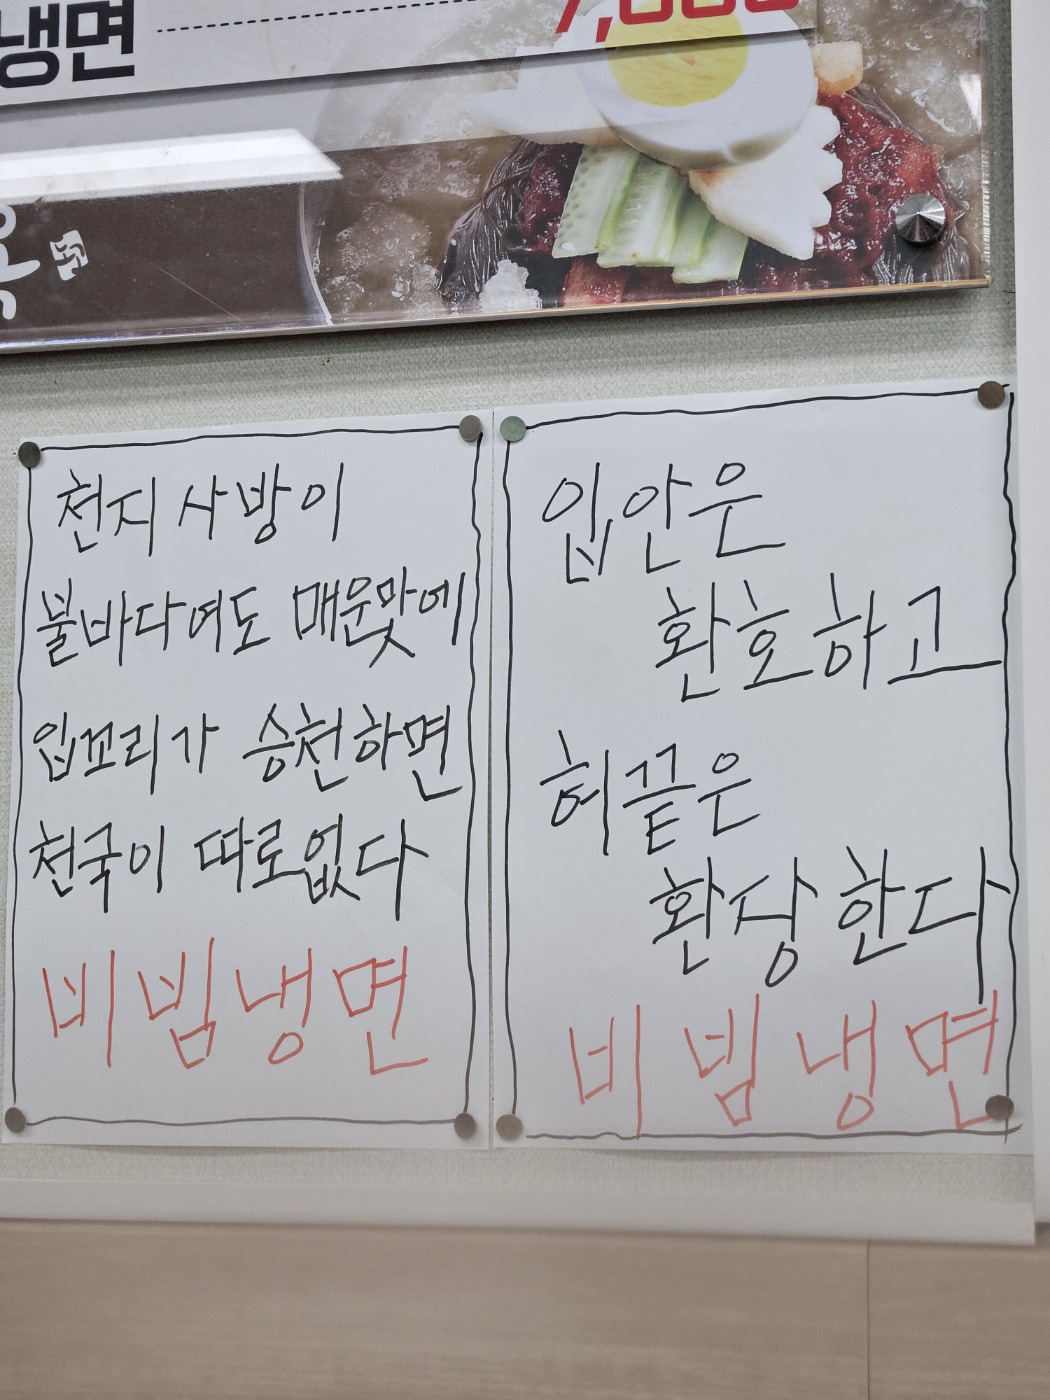 냉면
천지 사방이
불바다여도 매운맛에
입꼬리가 승천하면
천국이 따로없다
비빔냉면
입안은
환호하고
혀끝은
환상한다
비빔냉면